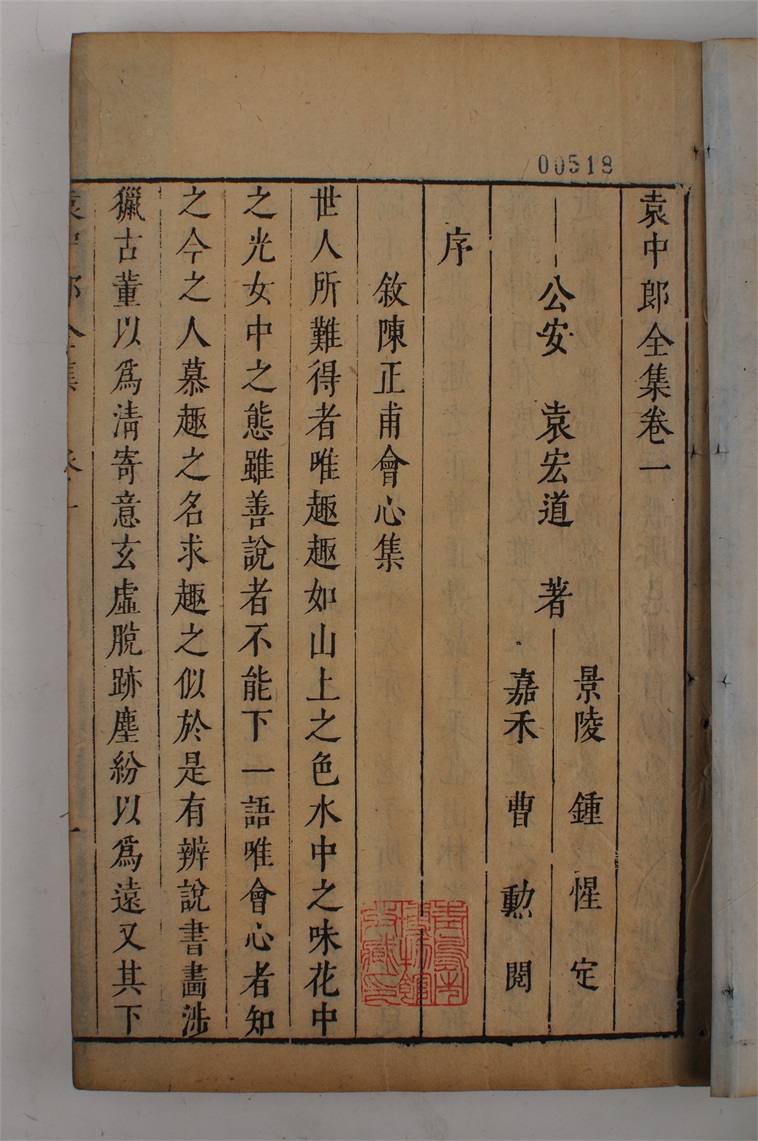 00518
袁中郎全集卷一
公安 袁宏道 著
景陵 鍾惺 定
嘉禾 曹勳 閱
序
敘陳正甫會心集
世人所難得者唯趣趣如山上之色水中之味花中
之光女中之態雖善說者不能下一語唯會心者知
之今之人慕趣之名求趣之似於是有辨說書畵涉
獵古董以爲清寄意玄虛脫跡塵紛以爲遠又其下